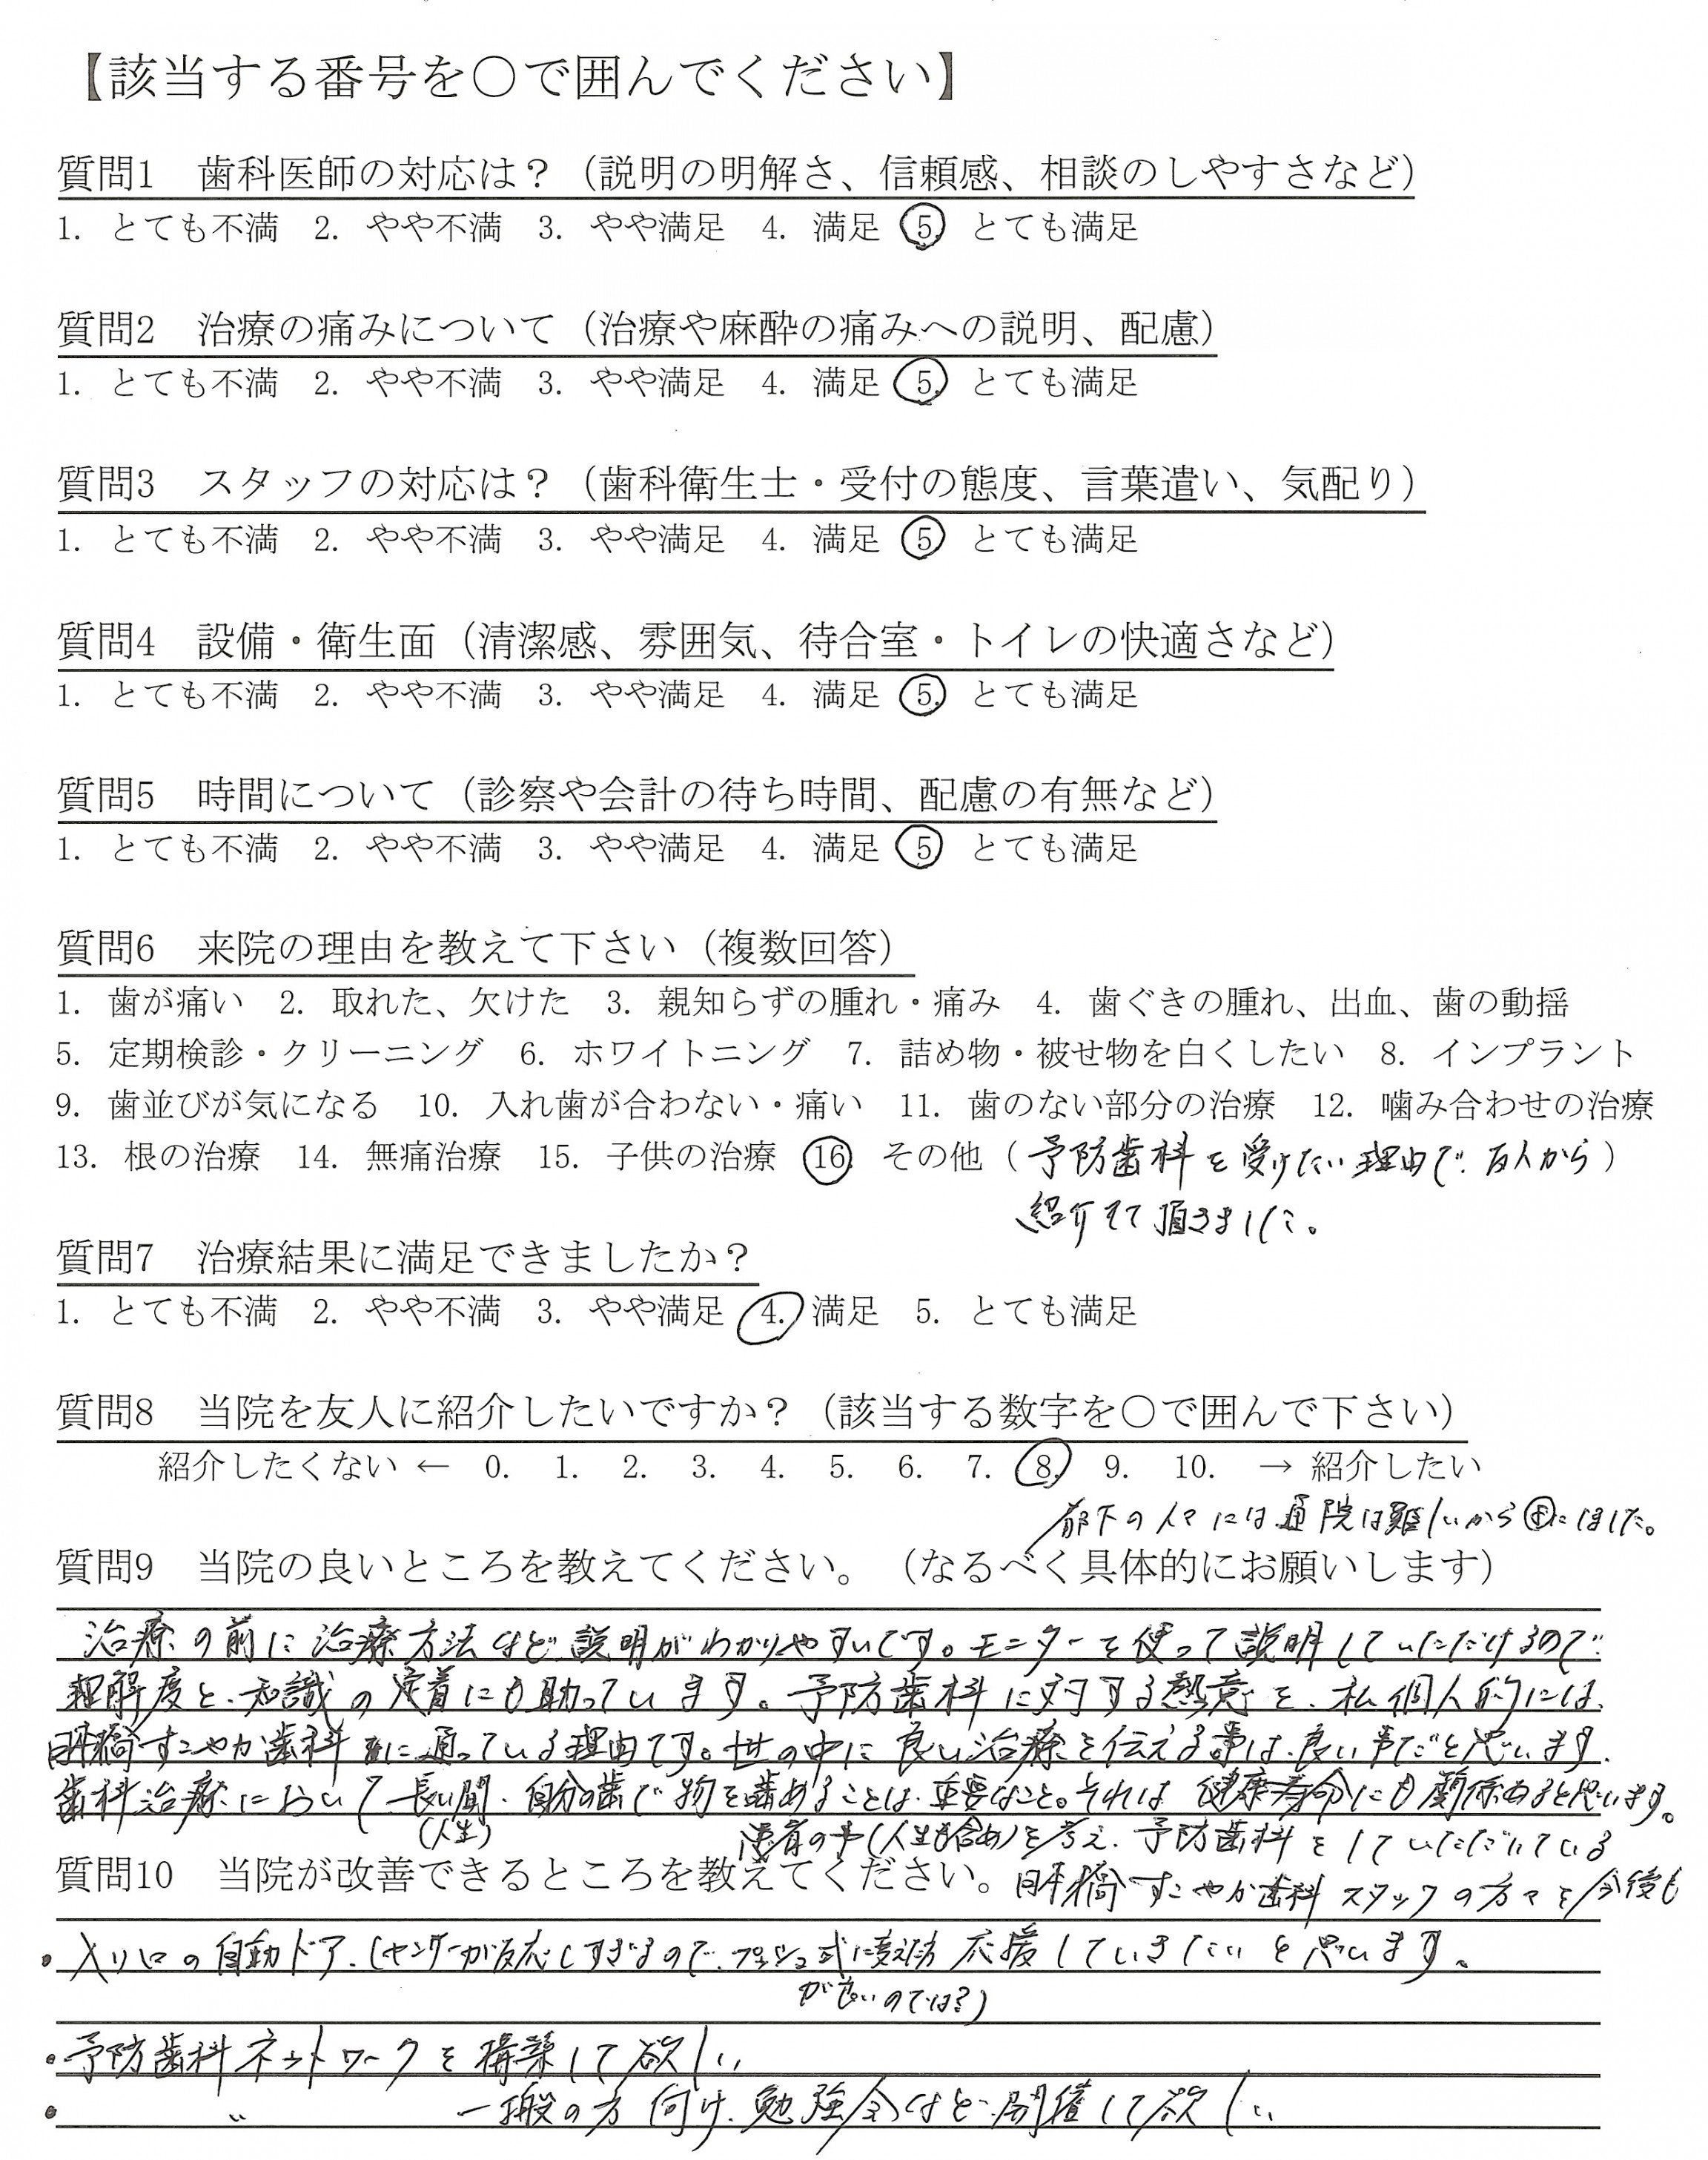 【該当する番号を○で囲んでください】
質問1　歯科医師の対応は？（説明の明解さ、信頼感、相談のしやすさなど）
1. とても不満　2. やや不満　3. やや満足　4. 満足　5. とても満足
質問2　治療の痛みについて（治療や麻酔の痛みへの説明、配慮）
1. とても不満　2. やや不満　3. やや満足　4. 満足　5. とても満足
質問3　スタッフの対応は？（歯科衛生士・受付の態度、言葉遣い、気配り）
1. とても不満　2. やや不満　3. やや満足　4. 満足　5. とても満足
質問4　設備・衛生面（清潔感、雰囲気、待合室・トイレの快適さなど）
1. とても不満　2. やや不満　3. やや満足　4. 満足　5. とても満足
質問5　時間について（診察や会計の待ち時間、配慮の有無など）
1. とても不満　2. やや不満　3. やや満足　4. 満足　5. とても満足
質問6　来院の理由を教えて下さい（複数回答）
1. 歯が痛い　2. 取れた、欠けた　3. 親知らずの腫れ・痛み　4. 歯ぐきの腫れ、出血、歯の動揺
5. 定期検診・クリーニング　6. ホワイトニング　7. 詰め物・被せ物を白くしたい　8. インプラント
9. 歯並びが気になる　10. 入れ歯が合わない・痛い　11. 歯のない部分の治療　12. 噛み合わせの治療
13. 根の治療　14. 無痛治療　15. 子供の治療　16. その他（予防歯科を受けたい理由で、友人から）
紹介して頂きました。
質問7　治療結果に満足できましたか？
1. とても不満　2. やや不満　3. やや満足　4. 満足　5. とても満足
質問8　当院を友人に紹介したいですか？（該当する数字を○で囲んで下さい）
紹介したくない ← 0. 1. 2. 3. 4. 5. 6. 7. 8. 9. 10. → 紹介したい
の人々には通院は難しいから にしました。
質問9　当院の良いところを教えてください。（なるべく具体的にお願いします）
治療の前に治療方法など説明がわかりやすいです。モニターを使って説明していただけるので
理解度と、知識の定着にも助っています。予防歯科に対する熱意を、私個人的には、
日本橋すこやか歯科に通っている理由です。世の中に良い治療を伝える事は、良い事だと思います。
歯科治療において、長い間、自分の歯で物を噛めることは、重要なこと。それは健康寿命にも関係あると思います。
（人生）
患者の事（人生も含め）を考え、予防歯科をしていただいている
質問10　当院が改善できるところを教えてください。
日本橋すこやか歯科スタッフの方々を今後も
応援していきたいと思います。
・入り口の自動ドア、（センサーが反応しすぎるので、プッシュ式に変えた方
が良いのでは？）
・予防歯科ネットワークを構築して欲しい
・　〃　一般の方向け、勉強会など、開催して欲しい